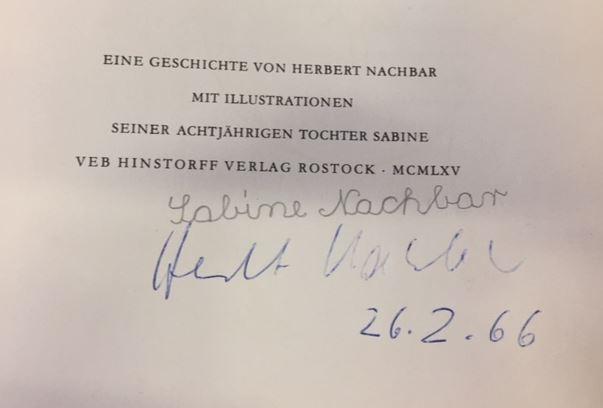 EINE GESCHICHTE VON HERBERT NACHBAR
MIT ILLUSTRATIONEN
SEINER ACHTJÄHRIGEN TOCHTER SABINE
VEB HINSTORFF VERLAG ROSTOCK · MCMLXV
Sabine Nachbar
Herbert Nachbar
26.2.66